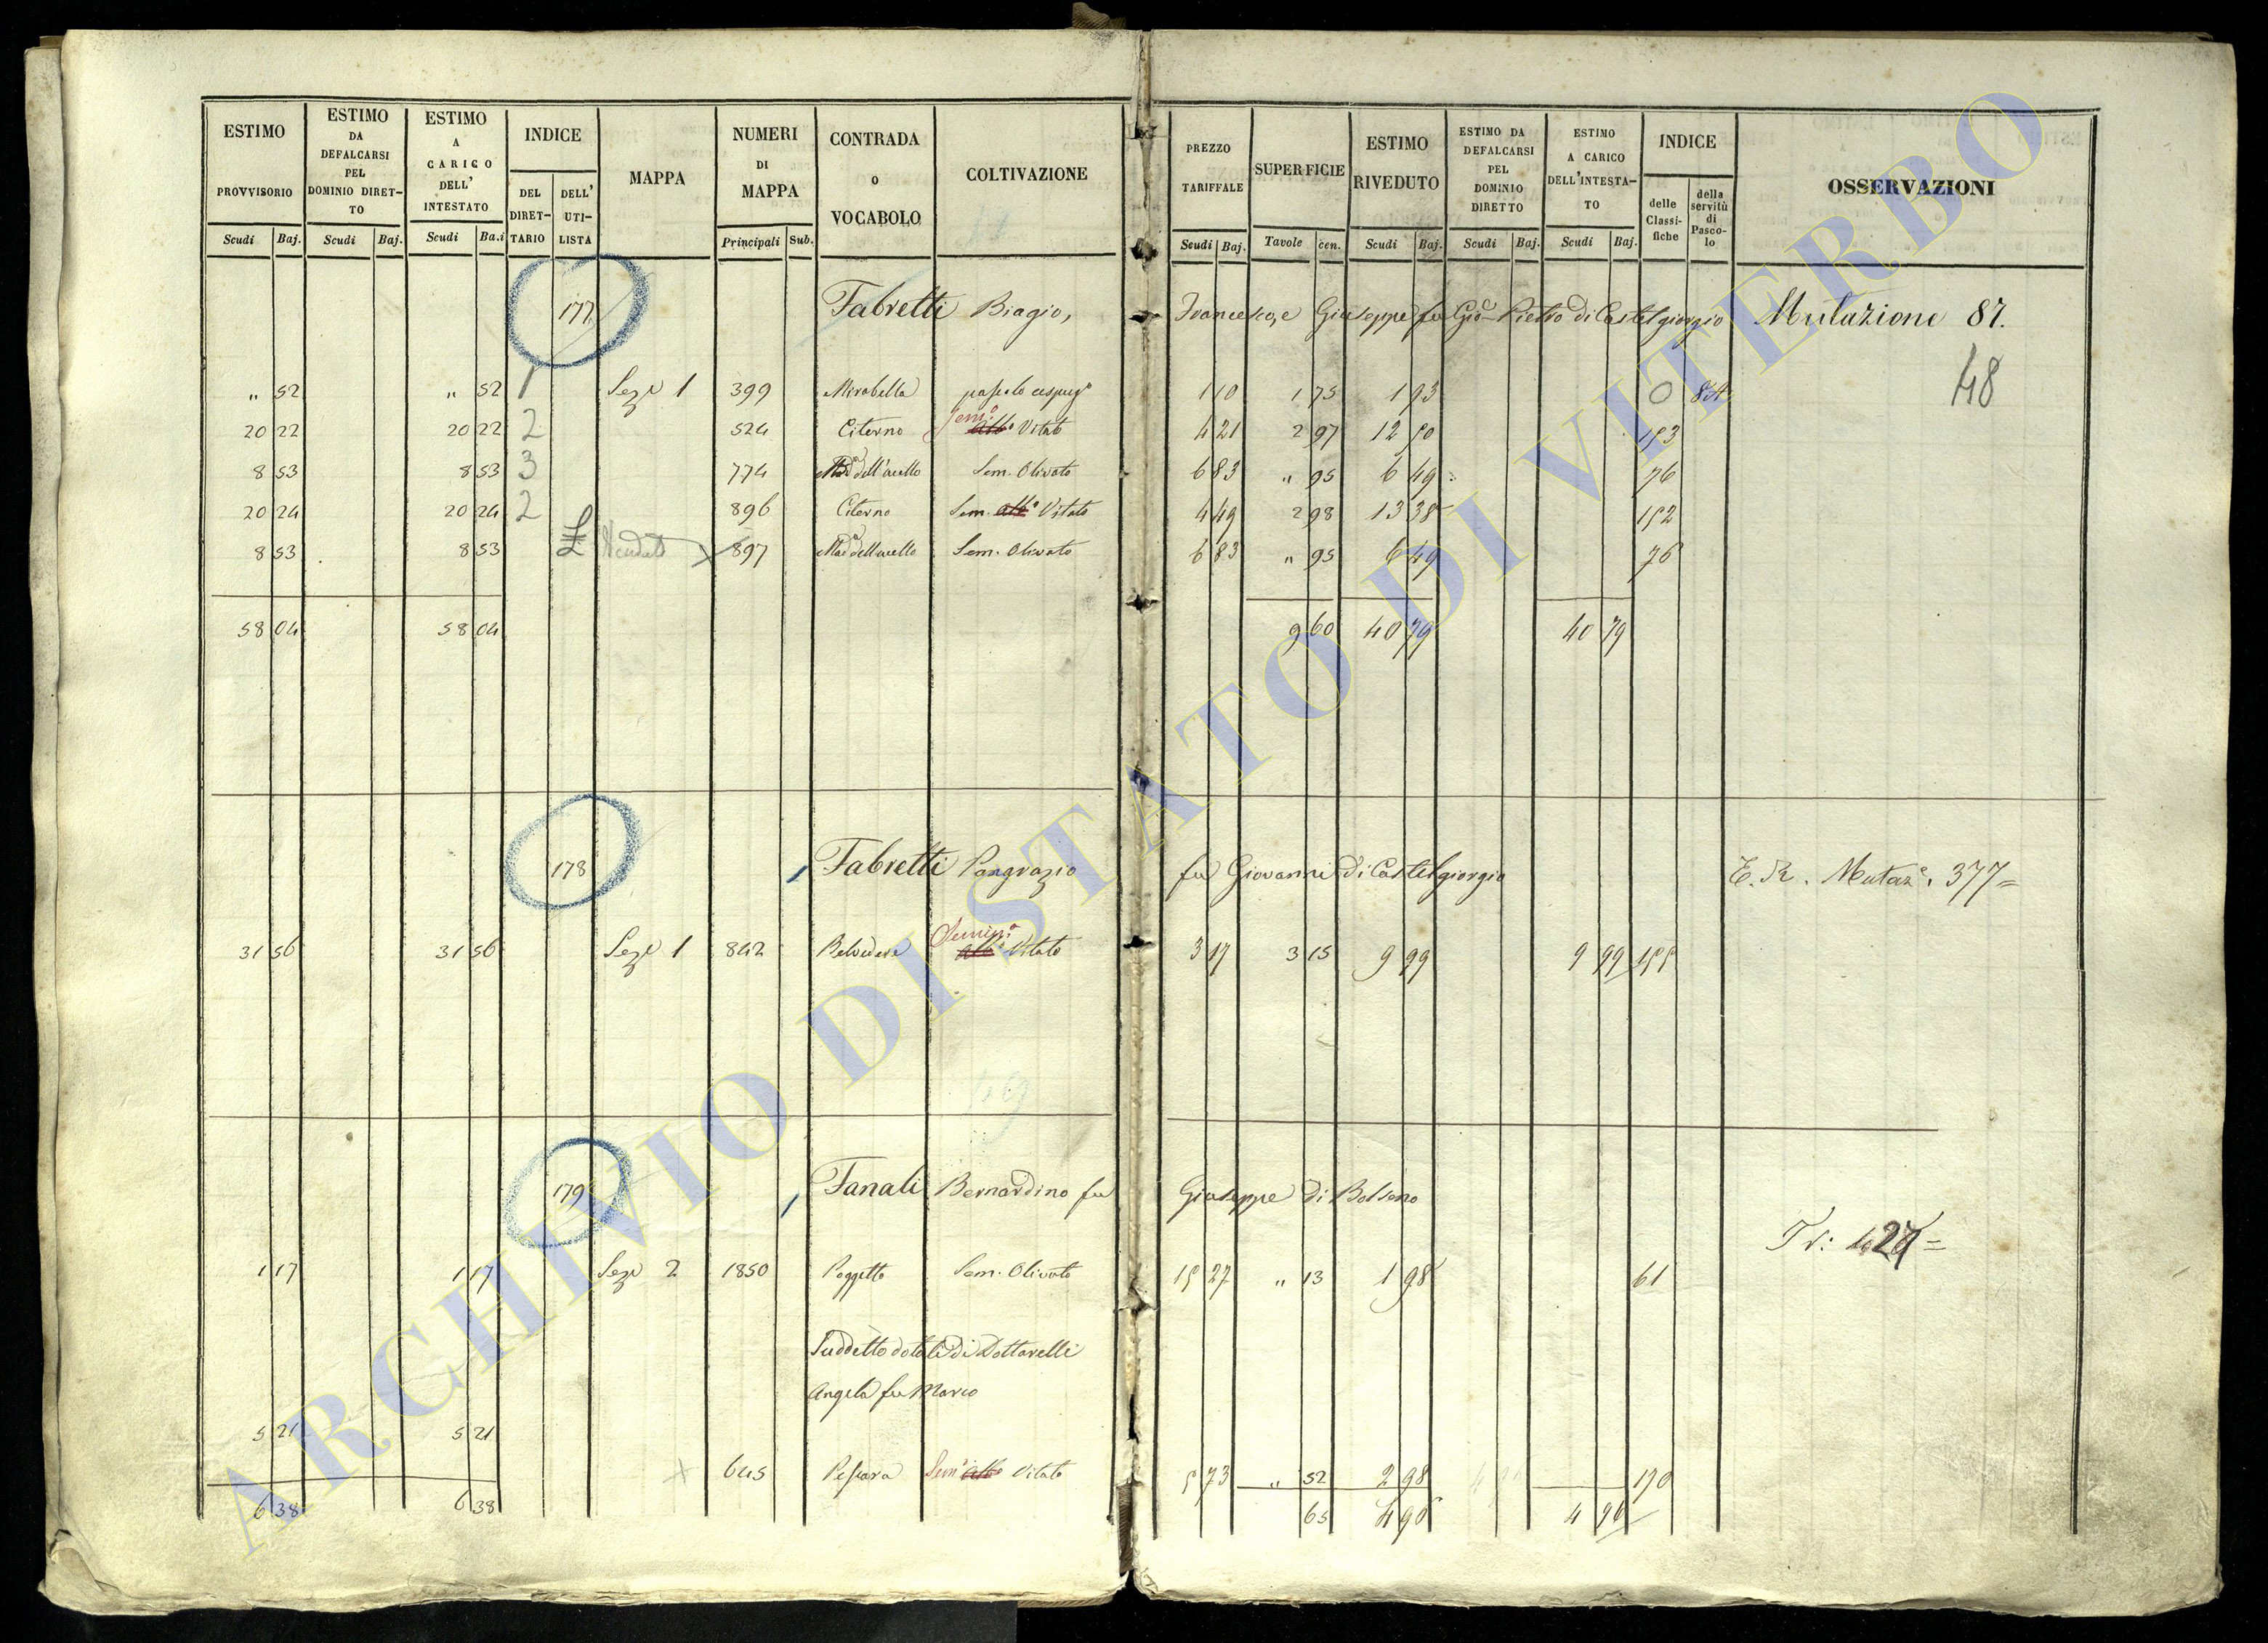 ESTIMO PROVVISORIO | ESTIMO DA DEFALCARSI PEL DOMINIO DIRETTO | ESTIMO A CARICO DELL' INTESTATO | INDICE | MAPPA | NUMERI DI MAPPA | CONTRADA o VOCABOLO | COLTIVAZIONE | PREZZO TARIFFALE | SUPERFICIE | ESTIMO RIVEDUTO | ESTIMO DA DEFALCARSI PEL DOMINIO DIRETTO | ESTIMO A CARICO DELL'INTESTATO | INDICE | OSSERVAZIONI
DEL DIRETTARIO | DELL' UTILISTA | delle Classifiche | della servitù di Pascolo
Scudi | Baj. | Scudi | Baj. | Scudi | Ba.i | Principali | Sub. | Scudi | Baj. | Tavole | cen. | Scudi | Baj. | Scudi | Baj. | Scudi | Baj.
177 Fabretti Biagio, Francesco, e Giuseppe fu Gio Pietro di Castelgiorgio Mutazione 87.
48
" 52 " 52 1 Sez 1 399 Mirabella pascolo cespug° 1 10 1 75 1 93 0 854
20 22 20 22 2 524 Citerno Sem° Vitato 4 21 2 97 12 50 153
8 53 8 53 3 774 Mad dell'ucello Sem. Olivato 6 83 " 95 6 49 76
20 24 20 24 2 896 Citerno Sem. alb° Vitato 4 49 2 98 13 38 152
8 53 8 53 Venduto 897 Mad dell ucello Sem. Olivato 6 83 " 95 6 49 76
58 04 58 04 9 60 40 79 40 79
178 Fabretti Pangrazio fu Giovanni di Castelgiorgio E. R. Mutaz°. 377=
31 56 31 56 Sez 1 842 Belvedere Semin° alb° Vitato 3 17 3 15 9 99 9 99 155
179 Fanali Bernardino fu Giuseppe di Bolseno
Tr: 427=
1 17 1 17 Sez 2 1850 Poggetto Sem. Olivato 15 27 " 13 1 98 61
Suddetto dotali di Dottarelli
Angela fu Marco
5 21 5 21
645 Pescara Sem° alb° Vitato 5 73 " 52 2 98 170
6 38 6 38 65 4 96 4 96
ARCHIVIO DI STATO DI VITERBO